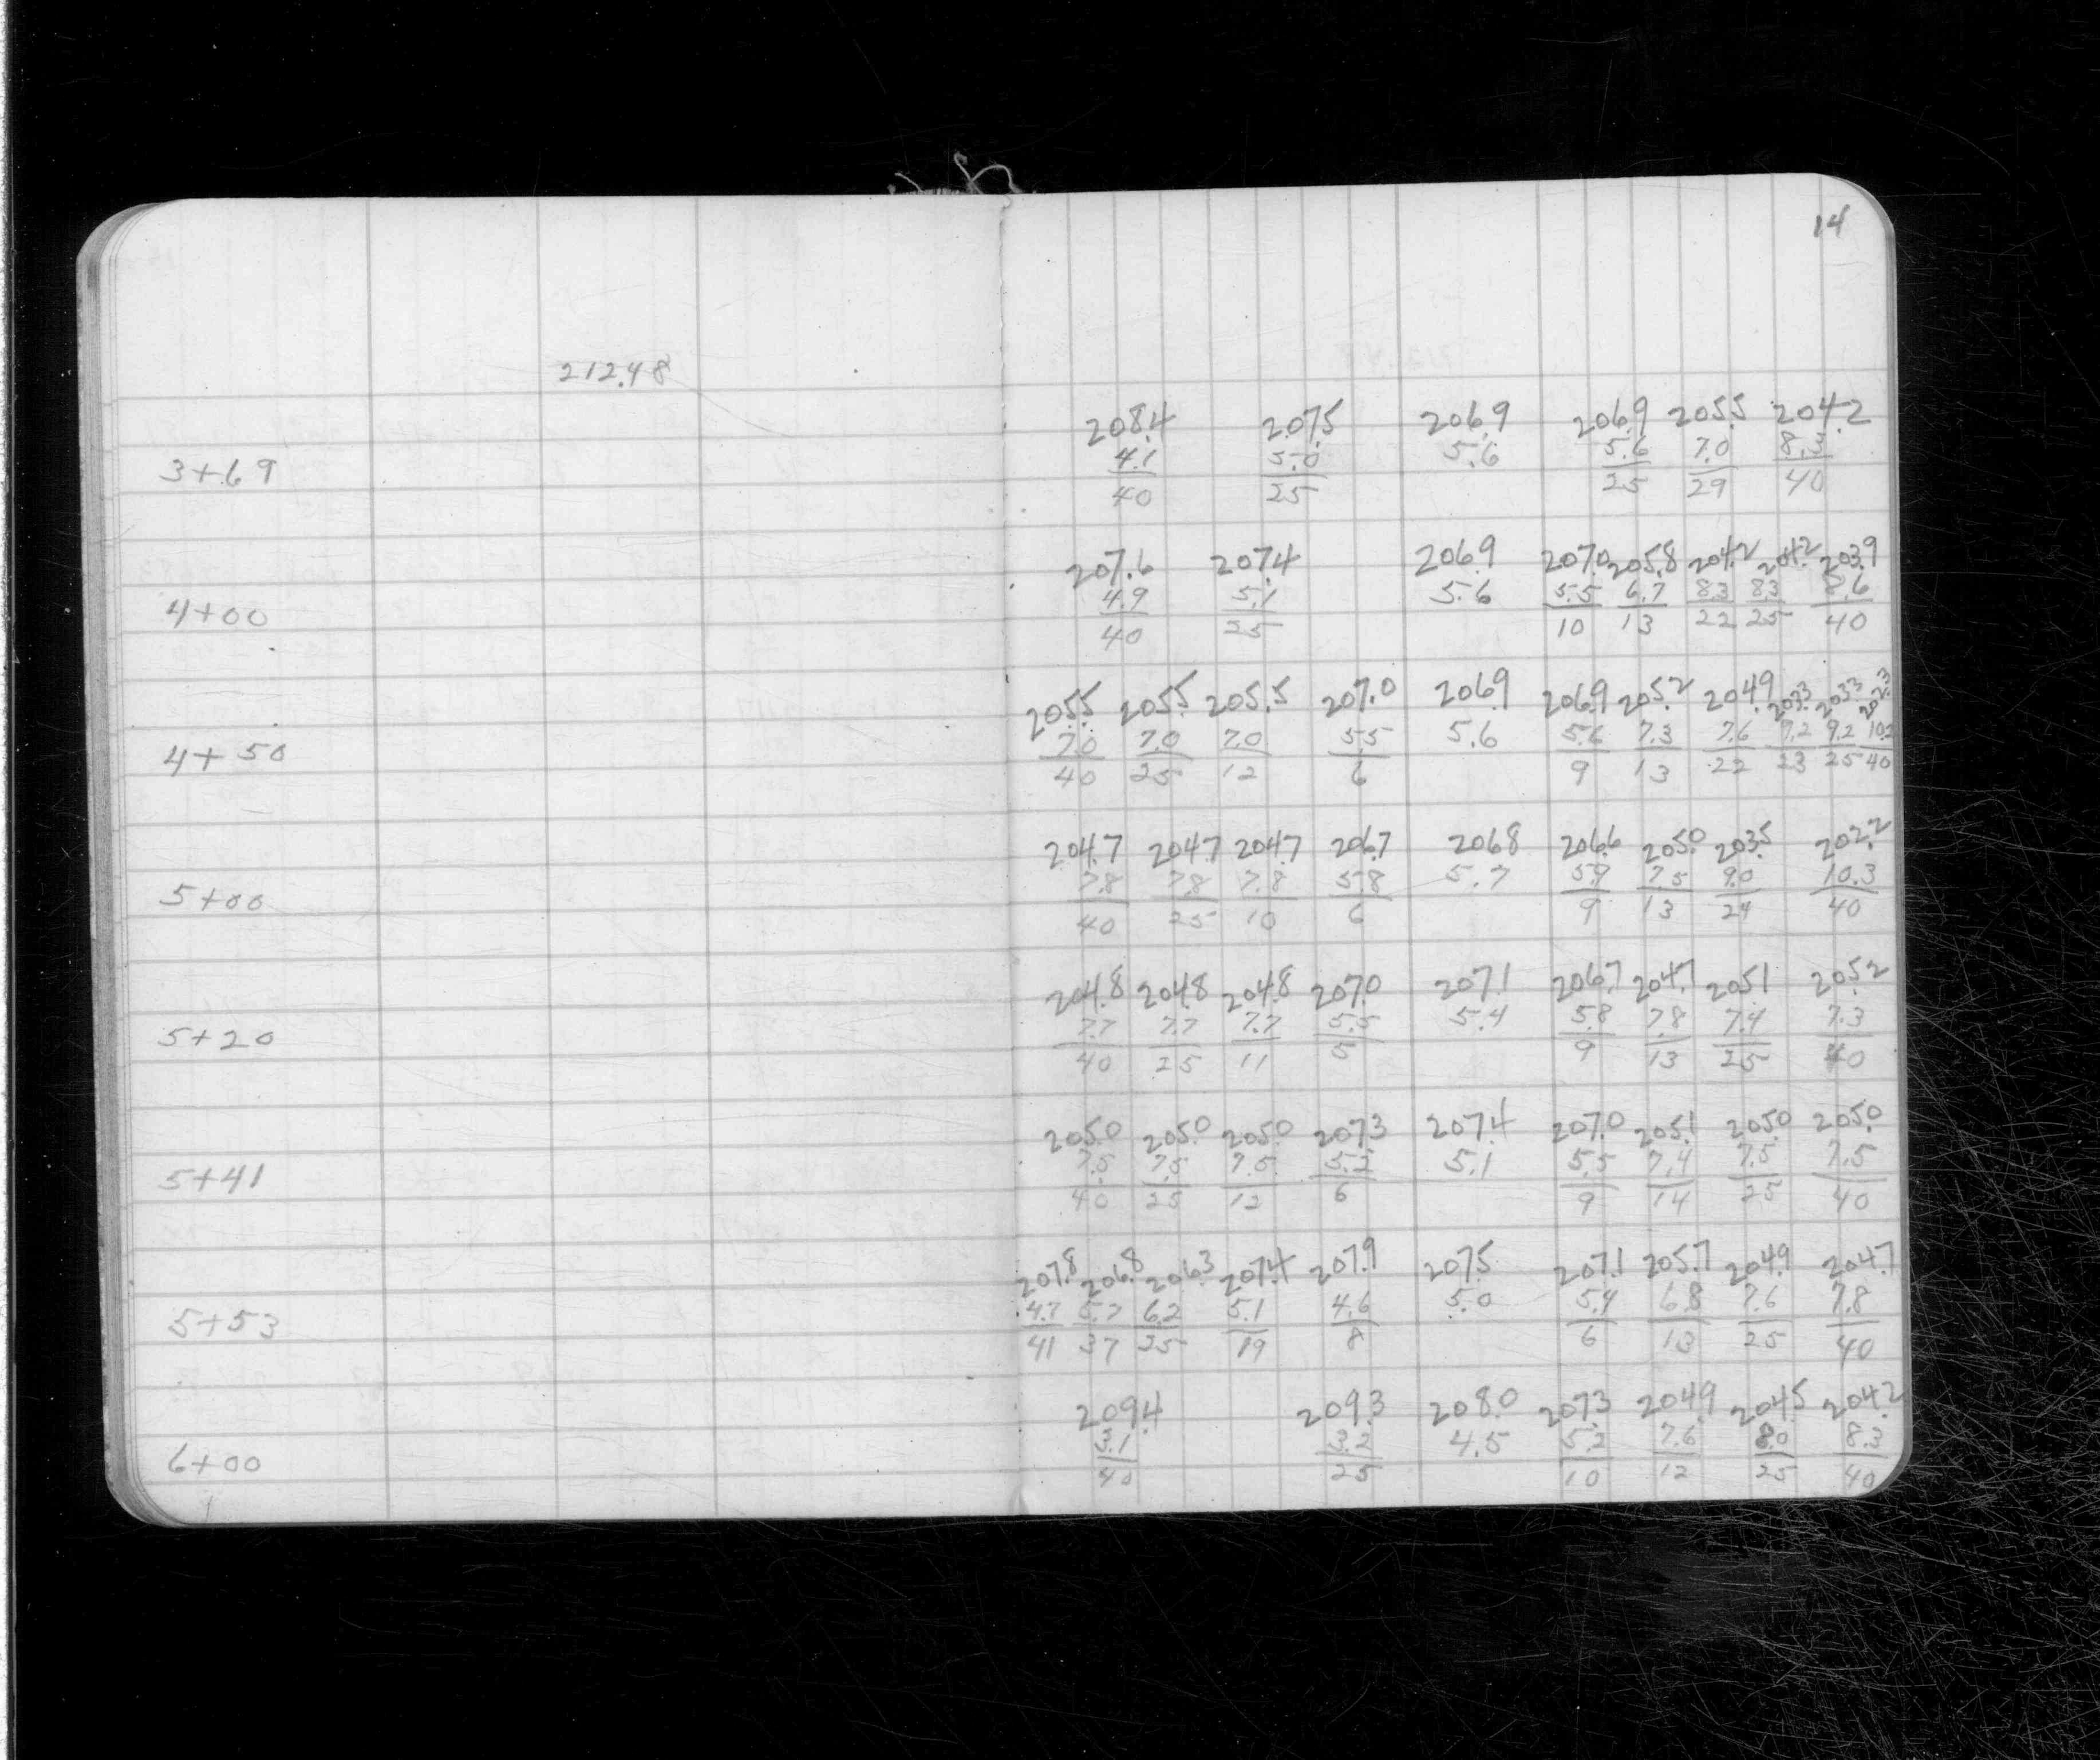 14
212.48
208.4 207.5 206.9 206.9 205.5 204.2
3+69 4.1 5.0 5.6 5.6 7.0 8.3
40 25 25 29 40
207.6 207.4 206.9 207.0 205.8 204.2 204.2 203.9
4+00 4.9 5.1 5.6 5.5 6.7 8.3 8.3 8.6
40 25 10 13 22 25 40
205.5 205.5 205.5 207.0 206.9 206.9 205.2 204.9 203.3 203.3 202.3
4+50 7.0 7.0 7.0 5.5 5.6 5.6 7.3 7.6 9.2 9.2 10.2
40 25 12 6 9 13 22 23 25 40
204.7 204.7 204.7 206.7 206.8 206.6 205.0 203.5 202.2
5+00 7.8 7.8 7.8 5.8 5.7 5.9 7.5 9.0 10.3
40 25 10 6 9 13 24 40
204.8 204.8 204.8 207.0 207.1 206.7 204.7 205.1 205.2
5+20 7.7 7.7 7.7 5.5 5.4 5.8 7.8 7.4 7.3
40 25 11 5 9 13 25 40
205.0 205.0 205.0 207.3 207.4 207.0 205.1 205.0 205.0
5+41 7.5 7.5 7.5 5.2 5.1 5.5 7.4 7.5 7.5
40 25 12 6 9 14 25 40
207.8 206.8 206.3 207.4 207.9 207.5 207.1 205.7 204.9 204.7
5+53 4.7 5.7 6.2 5.1 4.6 5.0 5.4 6.8 7.6 7.8
41 37 25 19 8 6 13 25 40
209.4 209.3 208.0 207.3 204.9 204.5 204.2
6+00 3.1 3.2 4.5 5.2 7.6 8.0 8.3
40 25 10 12 25 40